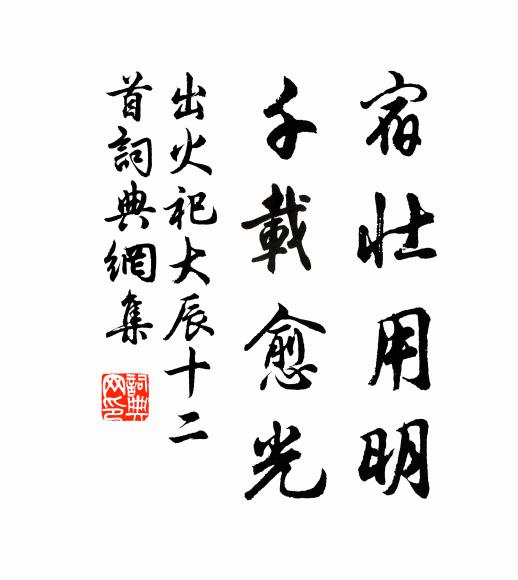 宿壮用明
千載愈光
出火祀大辰十二
首詞典網集
詞典
网印